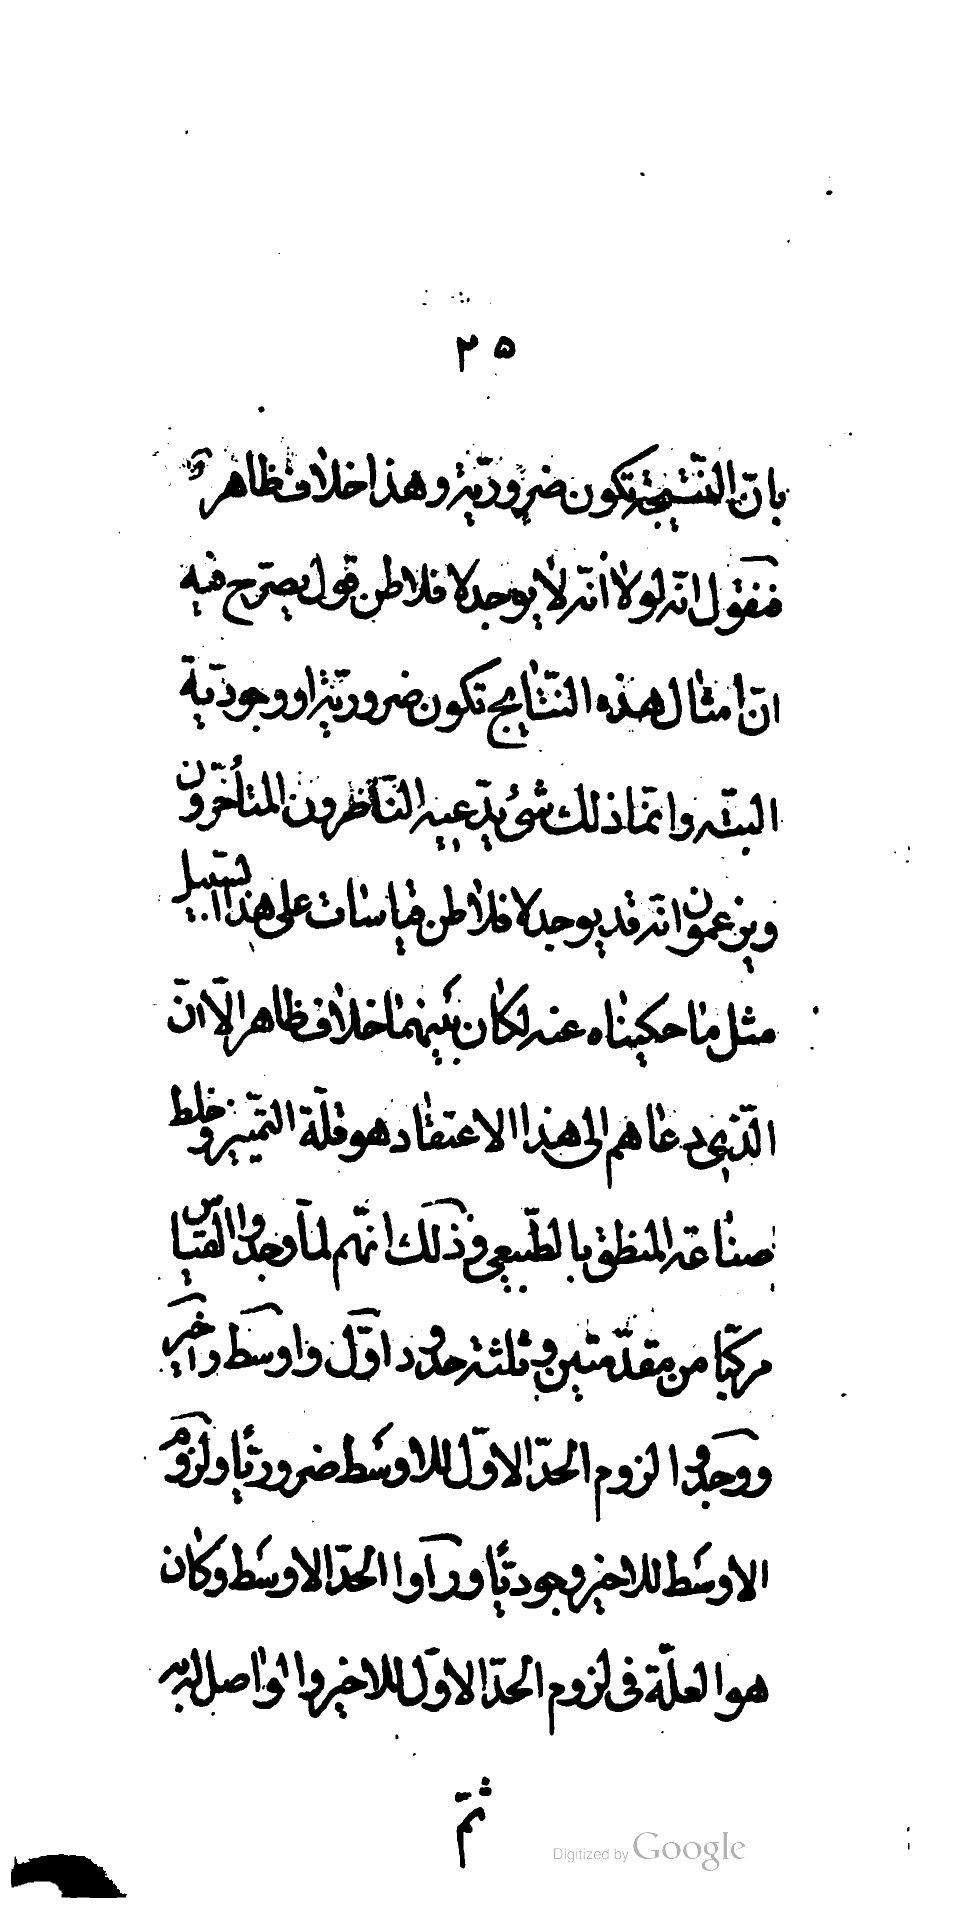 ٢٥
بانّ النّتيجة تكون ضروريّة وهذا خلاف ظاهر
فنقول انّه لولا انّه لا يوجد لافلاطن قول يصرّح فيه
انّ امثال هذه النّتايج تكون ضروريّة او وجوديّة
البتّه وانّما ذلك شئ يدّعيه النّاظرون المتأخّرون
ويزعمون انّه قد يوجد لافلاطن قياسات على هذا السّبيل
مثل ما حكيناه عنه لكان بينهما خلاف ظاهر الّا انّ
الّذي دعاهم الى هذا الاعتقاد هو قلّة التّمييز وخلط
صناعة المنطق بالطّبيعي وذلك انّهم لمّا وجدوا القياس
مركّبا من مقدّمتين وثلثة حدود اوّل واوسط واخير
ووجدوا لزوم الحدّ الاوّل للاوسط ضروريّا ولزوم
الاوسط للاخير وجوديّا ورآوا الحدّ الاوسط وكان
هو العلّة فى لزوم الحدّ الاوّل للاخير والواصل له به
ثمّ
Digitized by Google